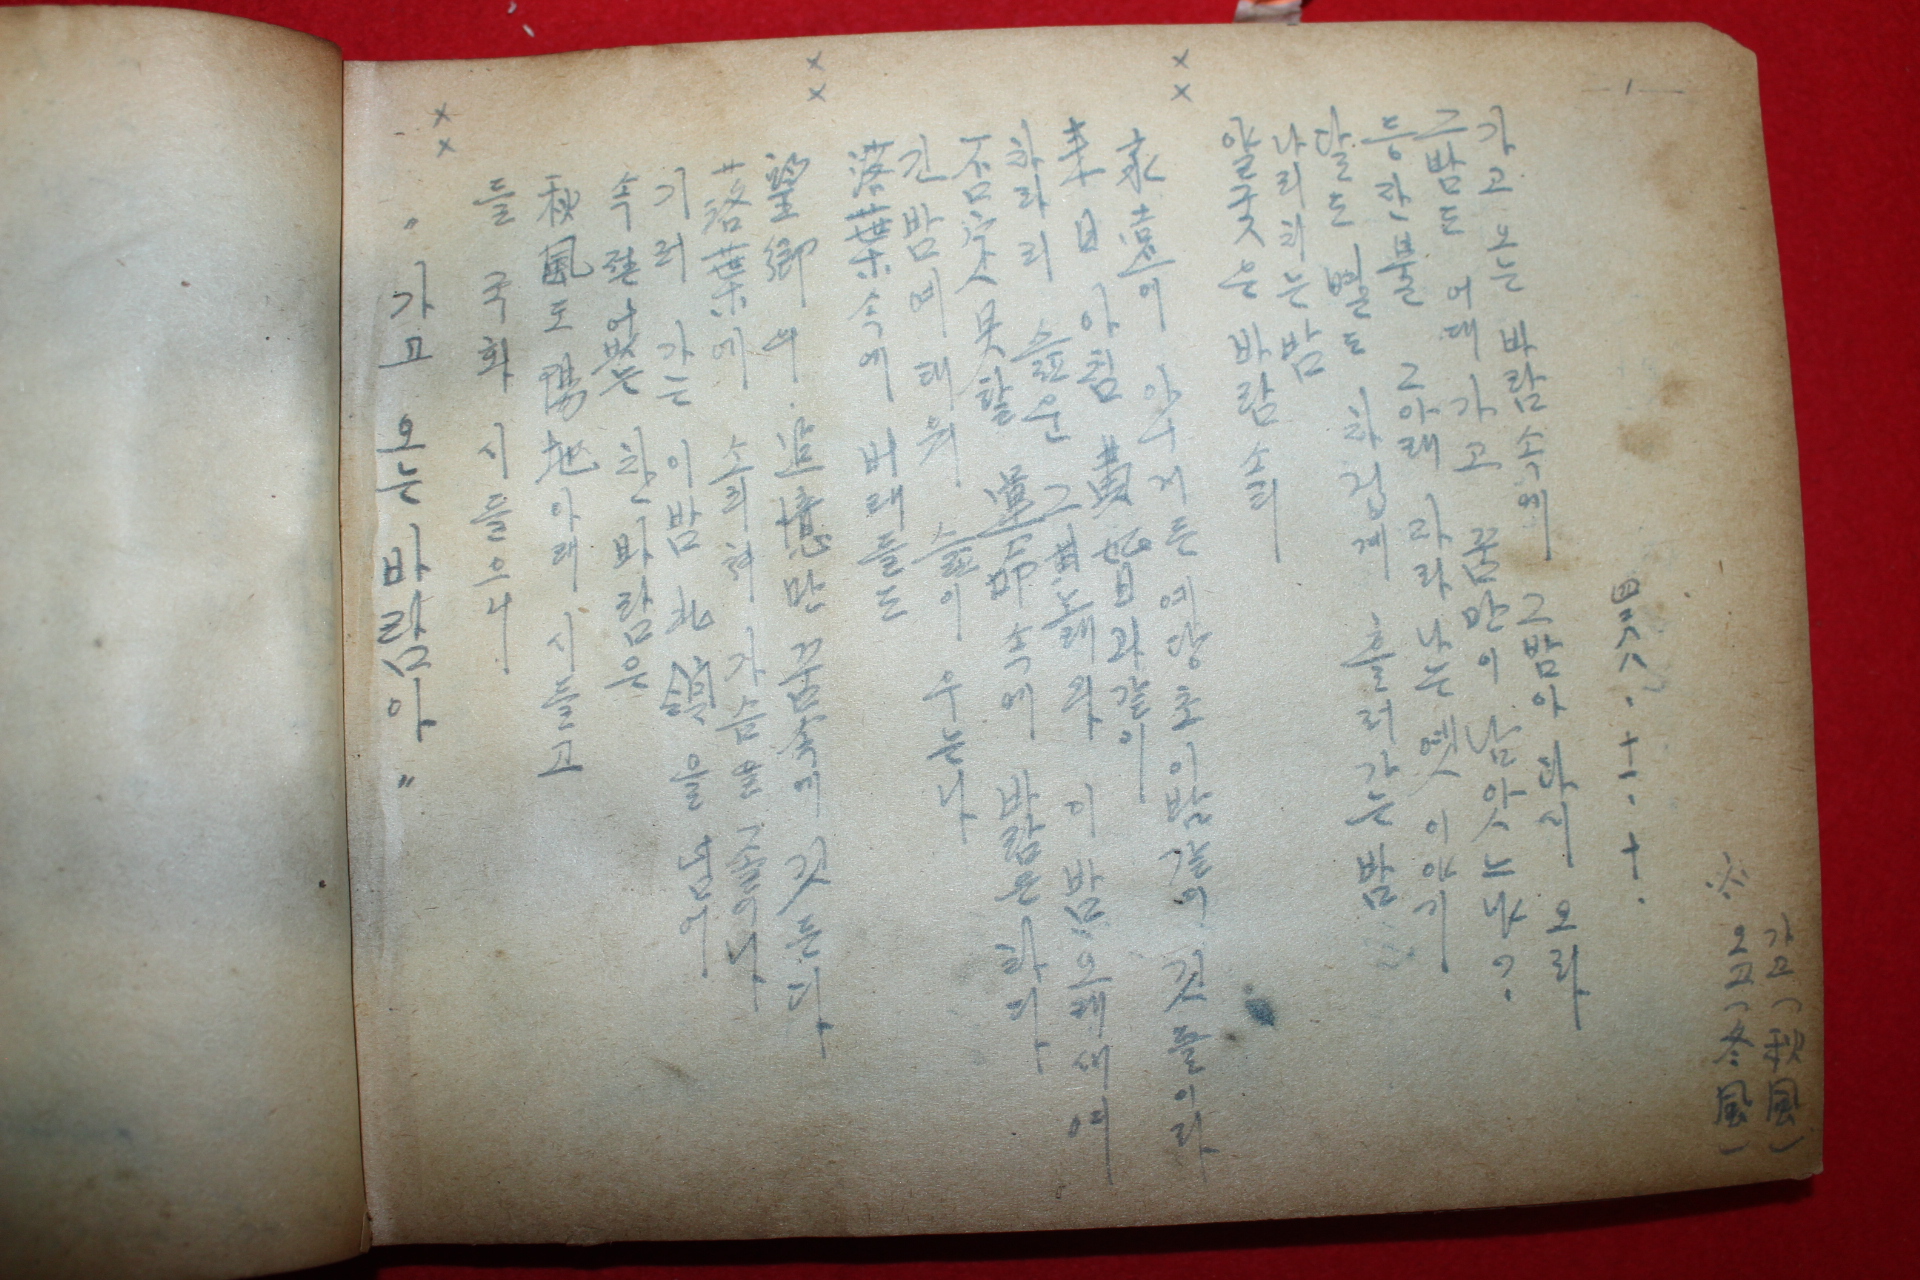 " 가고 오는 바람아 "
××
들 국화 시들으니
秋風도 陽地아래 시들고
속절 찬 바람은
기러 가는 이밤 北 을 넘어
落葉에 소리쳐 가슴을 졸이나
望鄕의 追憶만 꿈속에 깃든다
××
落葉속에 버래들도
긴밤 슬피 우는나
否定못할 運命속에 바람은 차다
차라리 슬픈 그 노래 이밤 새여
아침 과같이
永遠이 예당초 이밤같이 깃들이라
××
얄궂은 바람 소리
나리치는밤
달도 별도 차겁게 흘러가는밤
등잔불 그아래 자라나는 옛 이야기
그밤도 어데 가고 꿈만이 남앗느냐?
가고 오는 바람속에 그밤아 다시 오라
四二八八·十一·十·
※ 오고(冬風)
가고(秋風)
-1-